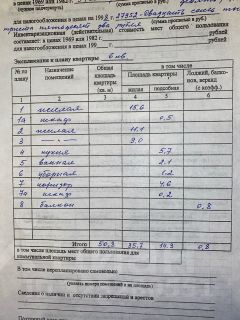 в ценах 1969 или 1982 г.
(сумма прописью в руб.)
для налогообложения в ценах на 1998 г. 27852 - двадцать семь
(сумма прописью в руб.)
Инвентаризационная (действительная) стоимость мест общего пользования
составляет: в ценах 1969 или 1982 г. рублей
для налогообложения в ценах 199 г. рублей
Экспликация к плану квартиры 6 кв.
№ по плану
Назначение помещений
Общая площадь квартиры (кв. м)
в том числе
Площадь квартиры
жилая
подсобная
Лоджий, балконов, веранд (с коэфф.)
1 2 3 4 5 6
1 жилая 15,6
1а шкаф 0,5
2 жилая 11,1
3 —"— 9,0
4 кухня 5,7
5 ванная 2,1
6 уборная 1,2
7 коридор 4,6
7а шкаф 0,2
8 балкон 0,8
Итого 50,3 35,7 14,3 0,8
в том числе площадь мест общего пользования для
коммунальной квартиры
В том числе перепланировано самовольно
(указать номера помещений и их площадь)
Сведения о наличии и отсутствии запрещений и арестов